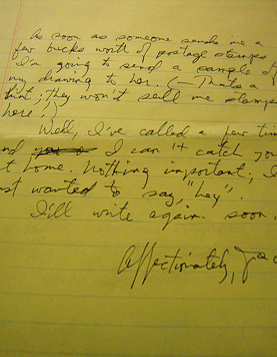 As soon as someone sends me a
few bucks worth of postage stamps
I'm going to send a sample of
my drawing to her. (—Thats a
hint; they won't sell me stamps
here!)
Well, I've called a few tim
and I can't catch you
t home. Nothing important; I
ust wanted to say, "hey".
I'll write again soon.
Affectionately,